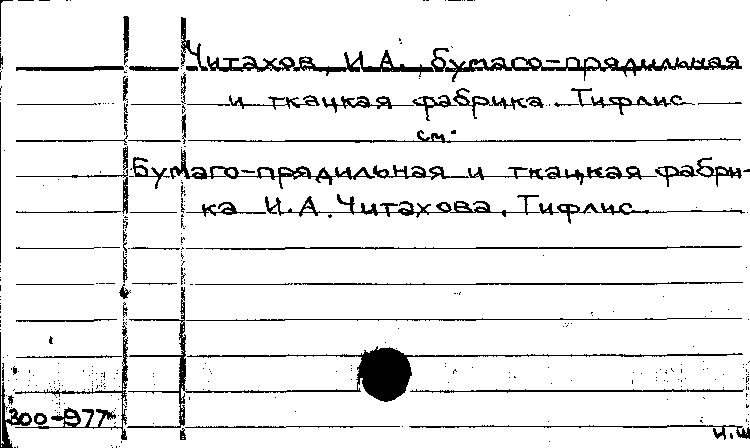 Читахов, И.А., бумаго-прядильная
и ткацкая фабрика. Тифлис
см.
Бумаго-прядильная и ткацкая фабри-
ка И.А. Читахова. Тифлис.
300-977
и.ш